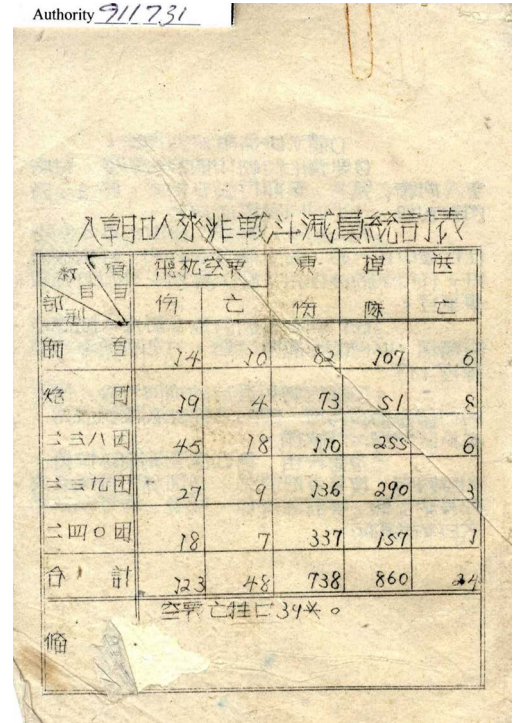 Authority 911731
入朝以來非战斗减員統計表
項目 數目 部別 飛机空襲 凍 掉 逃
伤 亡 伤 隊 亡
師直 14 10 82 107 6
炮团 19 4 73 51 8
二三八团 45 18 110 255 6
二三九团 27 9 136 290 3
二四〇团 18 7 337 157 1
合計 123 48 738 860 24
空襲亡牲口34
備